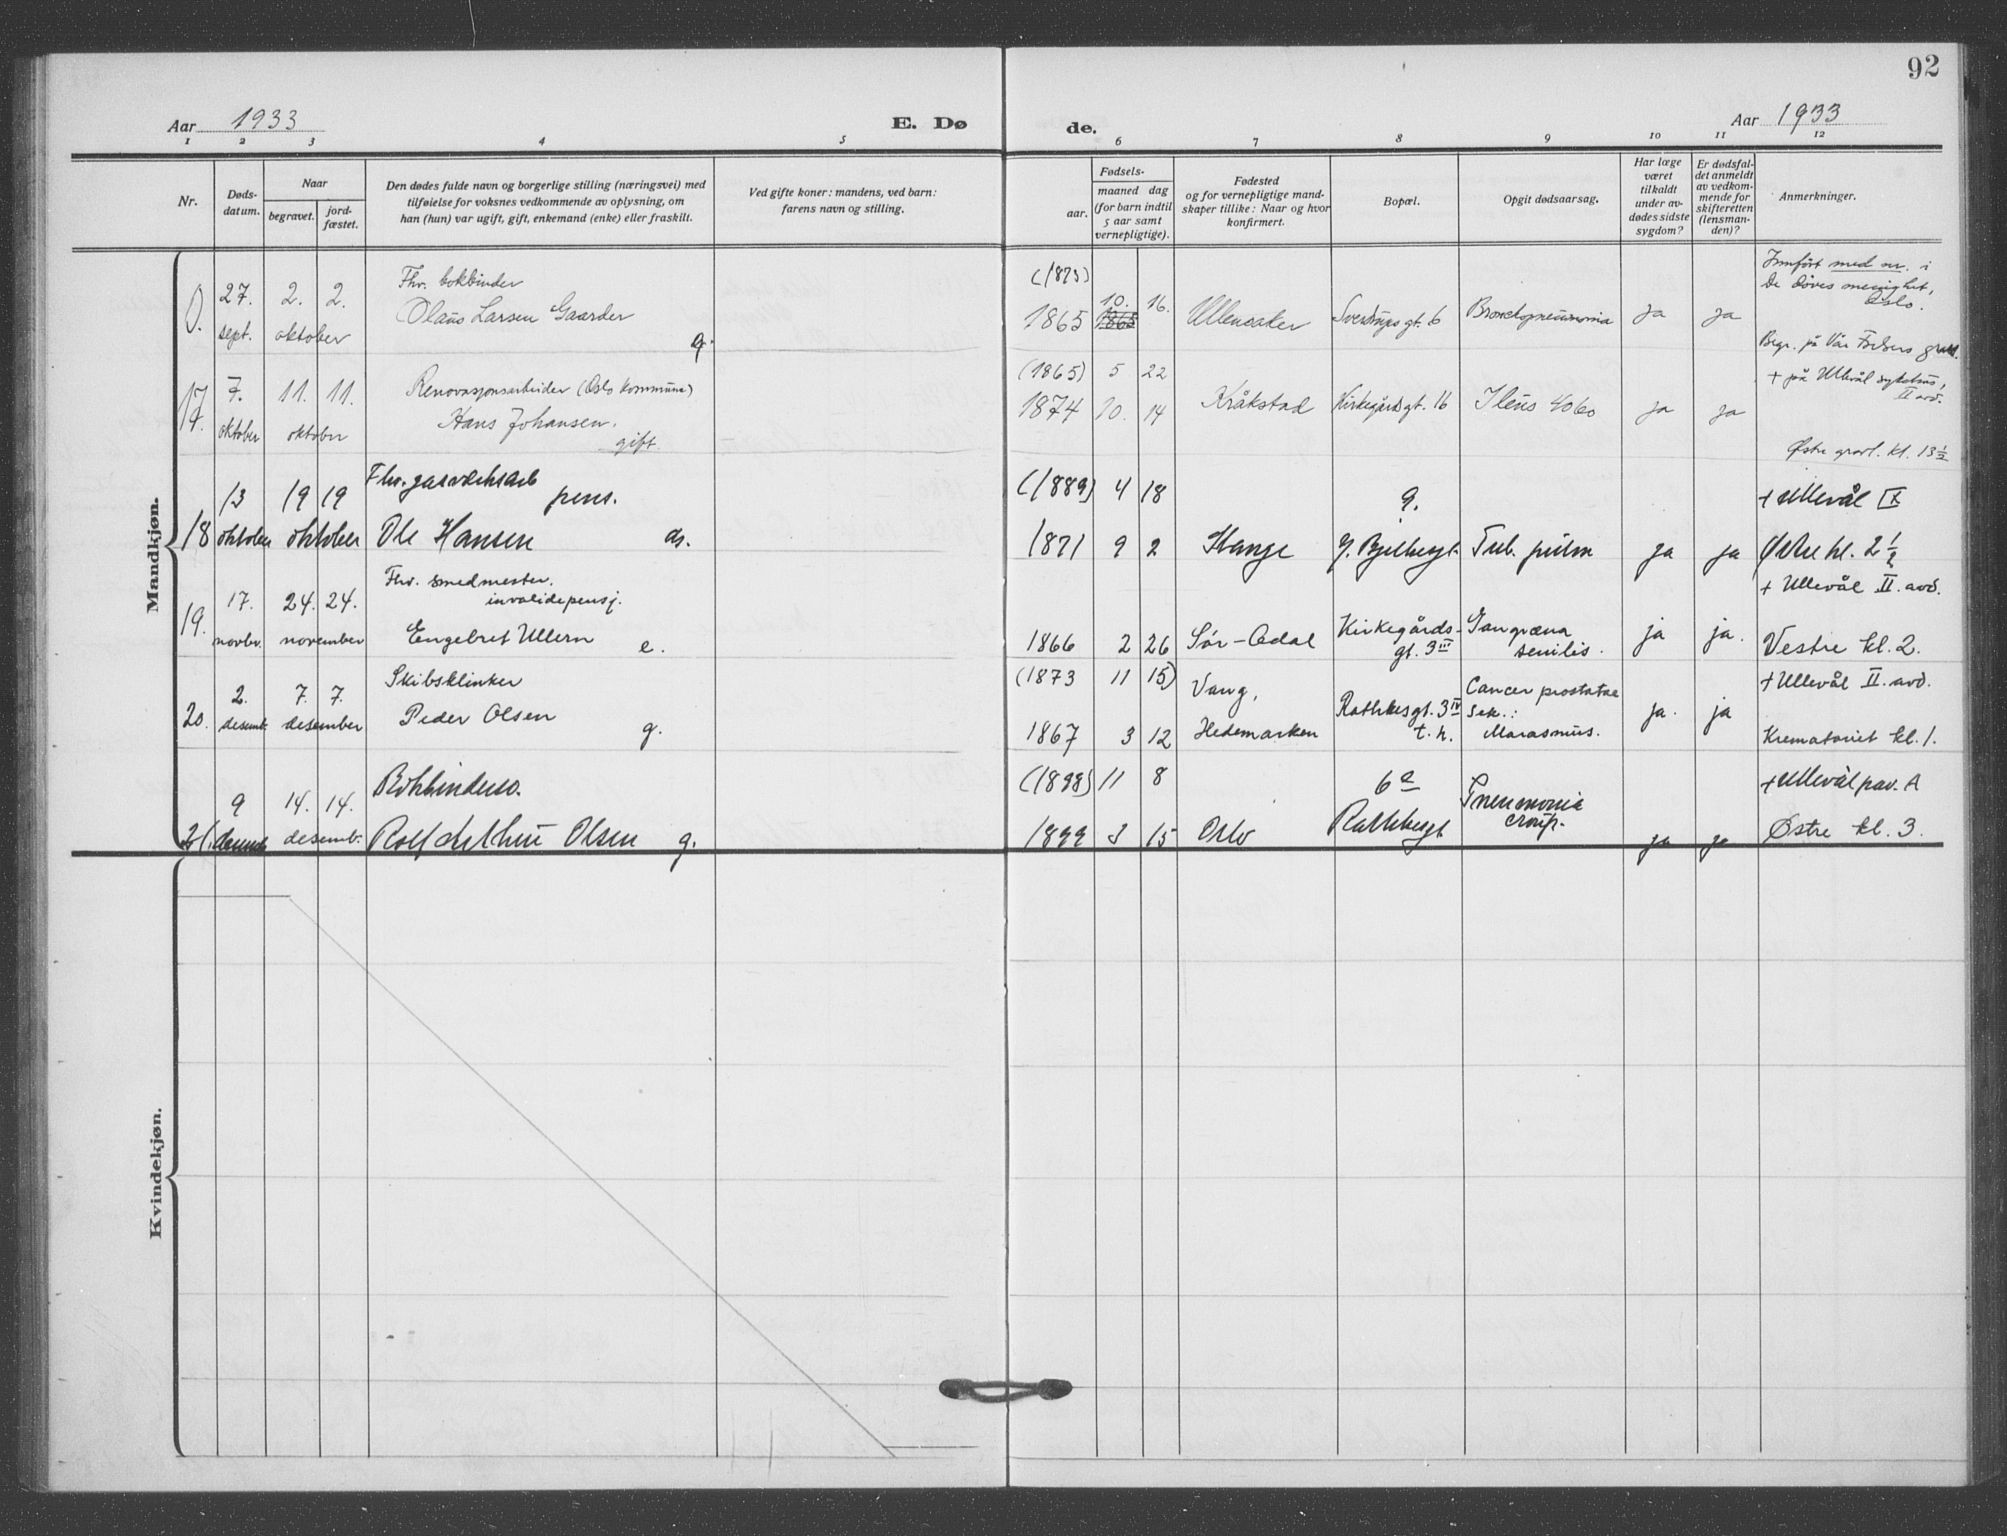 92
Aar 1933
E. Dø
de.
Aar 1933
1 2 3 4 5 6 7 8 9 10 11 12
Nr.
Døds-
datum.
Naar
begravet.
jord-
fæstet.
Den dødes fulde navn og borgerlige stilling (næringsvei) med
tilføielse for voksnes vedkommende av oplysning, om
han (hun) var ugift, gift, enkemand (enke) eller fraskilt.
Ved gifte koner: mandens, ved barn:
farens navn og stilling.
Fødsels-
aar.
maaned dag
(for barn indtil
5 aar samt
vernepligtige).
Fødested
og for vernepligtige mand-
skaper tillike: Naar og hvor
konfirmert.
Bopæl.
Opgit dødsaarsag.
Har læge
været
tilkaldt
under av-
dødes sidste
sygdom?
Er dødsfal-
det anmeldt
av vedkom-
mende for
skifteretten
(lensman-
den)?
Anmerkninger.
Mandkjøn.
0.
27.
sept.
2. 2.
oktober
Fhv. bokbinder
Olaus Larsen Gaarder
g.
(1873)
1865
10.
1865
16.
Ullensaker
Sverdrups gt. 6
Bronchopneumonia
ja
ja
Innført med nr. i
De døves menighet,
Oslo.
Begr. på Vår Frelsers gravl.
17.
7.
oktober
11. 11.
oktober
Renovasjonsarbeider (Oslo kommune)
Hans Johansen.
gift
(1865) 5 22
1874 10. 14
Kråkstad
Kirkegårdsgt. 16
Ileus
ja
ja
+ på Ullevål sykehus,
II avd.
Østre gravl. kl. 13 ½
18
13
oktober
19 19
oktober
Fhv. gasverksarb
pens.
Ole Hansen
(1889) 4 18
1871 9 2
Stange
Tub. pulm
ja
ja
+ Ullevål IX
Østre kl. 2 ½
19.
17.
novbr.
24. 24.
november
Fhv. smedmester.
invalidepensj.
Engebret Ullern
e.
1866 2 26
Sør-Odal
Kirkegårds-
gt. 3 III
Gangræna
senilis.
ja
ja.
+ Ullevål II. avd.
Vestre kl. 2.
20.
2.
desemb.
7. 7.
desember
Skibsklinker
Peder Olsen
g.
(1873 11 15)
1867 3 12
Vang,
Hedemarken
Rathkesgt. 3 IV
t. h.
Cancer prostatae
Sek.:
Marasmus.
ja.
ja
+ Ullevål II. avd.
Krematoriet kl. 1.
21.
9
desemb
14. 14.
desemb.
Bokbindersv.
Rolf Arthur Olsen
g.
(1898) 11 8
1899 3 15
Oslo
6 a
Rathkesgt
Pneumonia
croup.
ja
ja
+ Ullevål pav. A
Østre kl. 3.
Kvindekjøn.